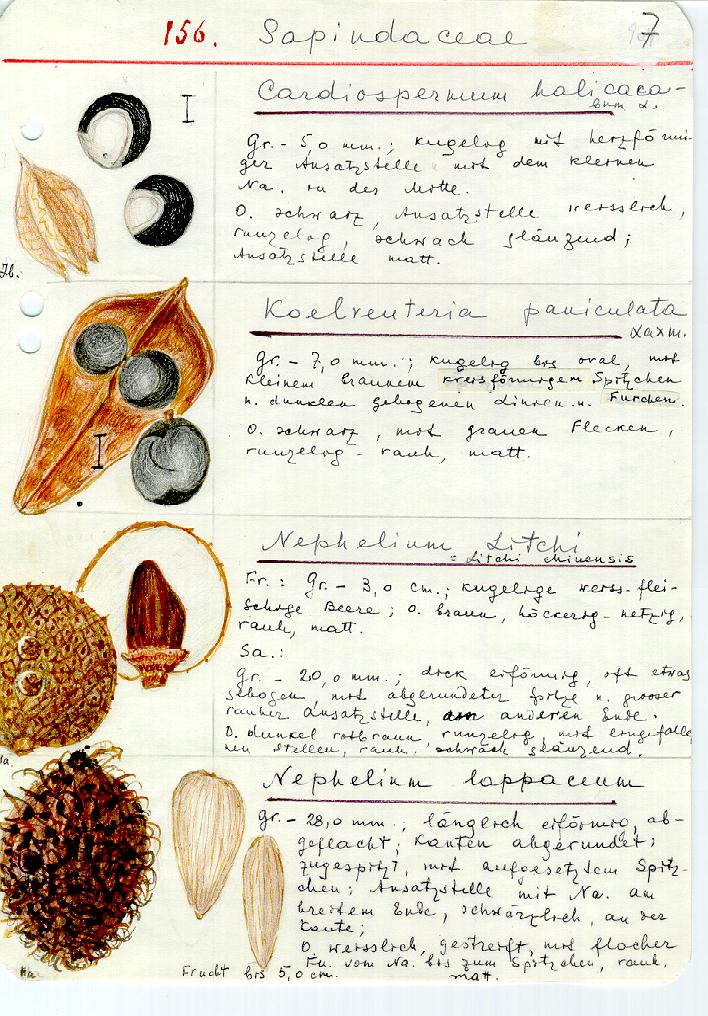 156. Sapindaceae 7
I
Cardiospermum halicaca-
bum L.
Gr. - 5,0 mm.; kugelig mit herzförmi-
ger Ansatzstelle mit dem kleinen
Na. in der Mitte.
O. schwarz, Ansatzstelle weisslich,
runzelig, schwach glänzend;
Ansatzstelle matt.
Koelreuteria paniculata
Laxm.
Gr. - 7,0 mm.; kugelig bis oval, mit
kleinem braunem kreisförmigem Spitzchen
u. dunklen gebogenen Linien u. Furchen.
O. schwarz, mit grauen Flecken,
runzelig - rauh, matt.
I
Nephelium Litchi
= Litchi chinensis
Fr.: Gr. - 3,0 cm.; kugelige weiss-flei-
schige Beere; O. braun, höckerig-netzig,
rauh, matt.
Sa.:
Gr. - 20,0 mm.; dick eiförmig, oft etwas
gebogen, mit abgerundeter Spitze u. grosser
rauher Ansatzstelle, am anderen Ende.
O. dunkel rotbraun runzelig, mit eingefalle
nen Stellen, rauh, schwach glänzend.
Nephelium lappaceum
Gr. - 28,0 mm.; länglich eiförmig, ab-
geflacht; Kanten abgerundet;
zugespitzt, mit aufgesetztem Spitz-
chen; Ansatzstelle mit Na. am
breitem Ende, schwärzlich, an der
Kante;
O. weisslich, gestreift, mit flacher
Fu. vom Na. bis zum Spitzchen, rauh,
matt.
Frucht bis 5,0 cm.